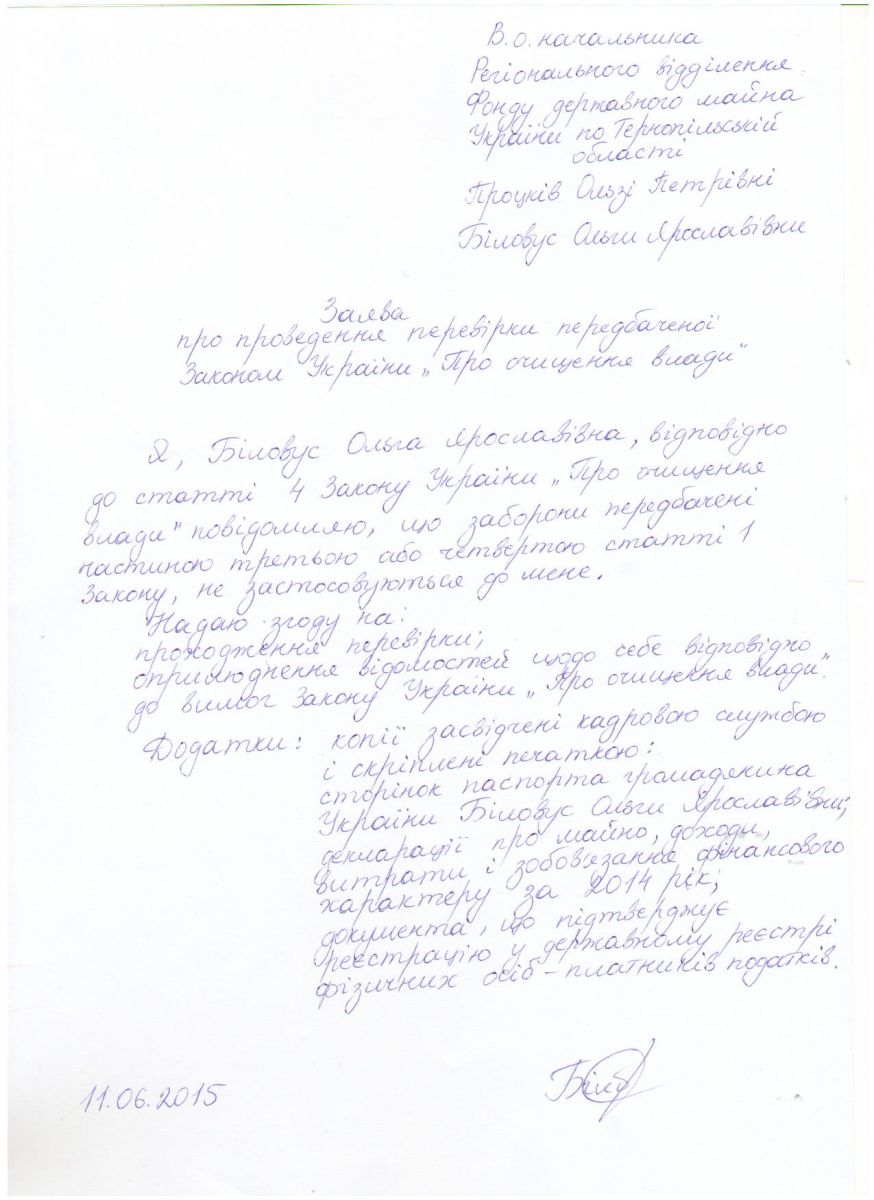 В.о. начальника
Регіонального відділення
Фонду державного майна
України по Тернопільській
області
ПроцківОльзі Петрівні
Біловус Ольги Ярославівни
Заява
про проведення перевірки передбаченої
Законом України „Про очищення влади"
Я, Біловус Ольга Ярославівна, відповідно
до статті 4 Закону України „Про очищення
влади" повідомляю, що заборони передбачені
частиною третьою або четвертою статті 1
Закону, не застосовуються до мене.
Надаю згоду на:
проходження перевірки;
оприлюднення відомостей щодо себе відповідно
до вимог Закону України „Про очищення влади".
Додатки: копії засвідчені кадровою службою
і скріплені печаткою:
сторінок паспорта громадянина
України Біловус Ольги Ярославівни;
декларації про майно, доходи,
витрати і зобов'язання фінансового
характеру за 2014 рік;
документа, що підтверджує
реєстрацію у державному реєстрі
фізичних осіб – платників податків.
11.06.2015